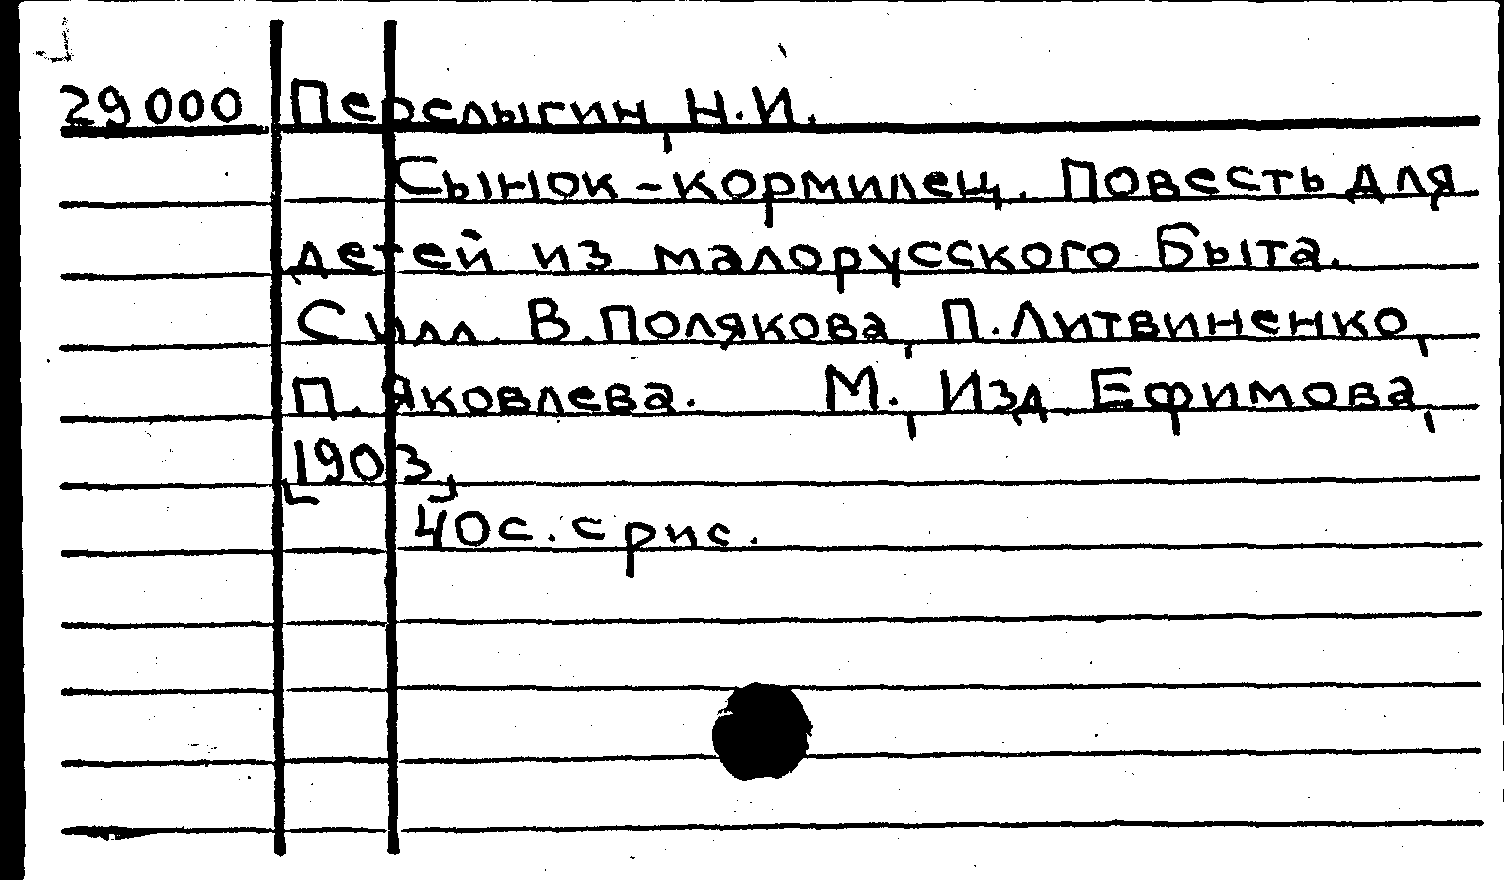 29000 Перелыгин, Н.И.
Сынок-кормилец. Повесть для
детей из малорусского быта.
С илл. В. Полякова, П. Литвиненко,
П. Яковлева. М., Изд. Ефимова,
1903
40 с. с рис.